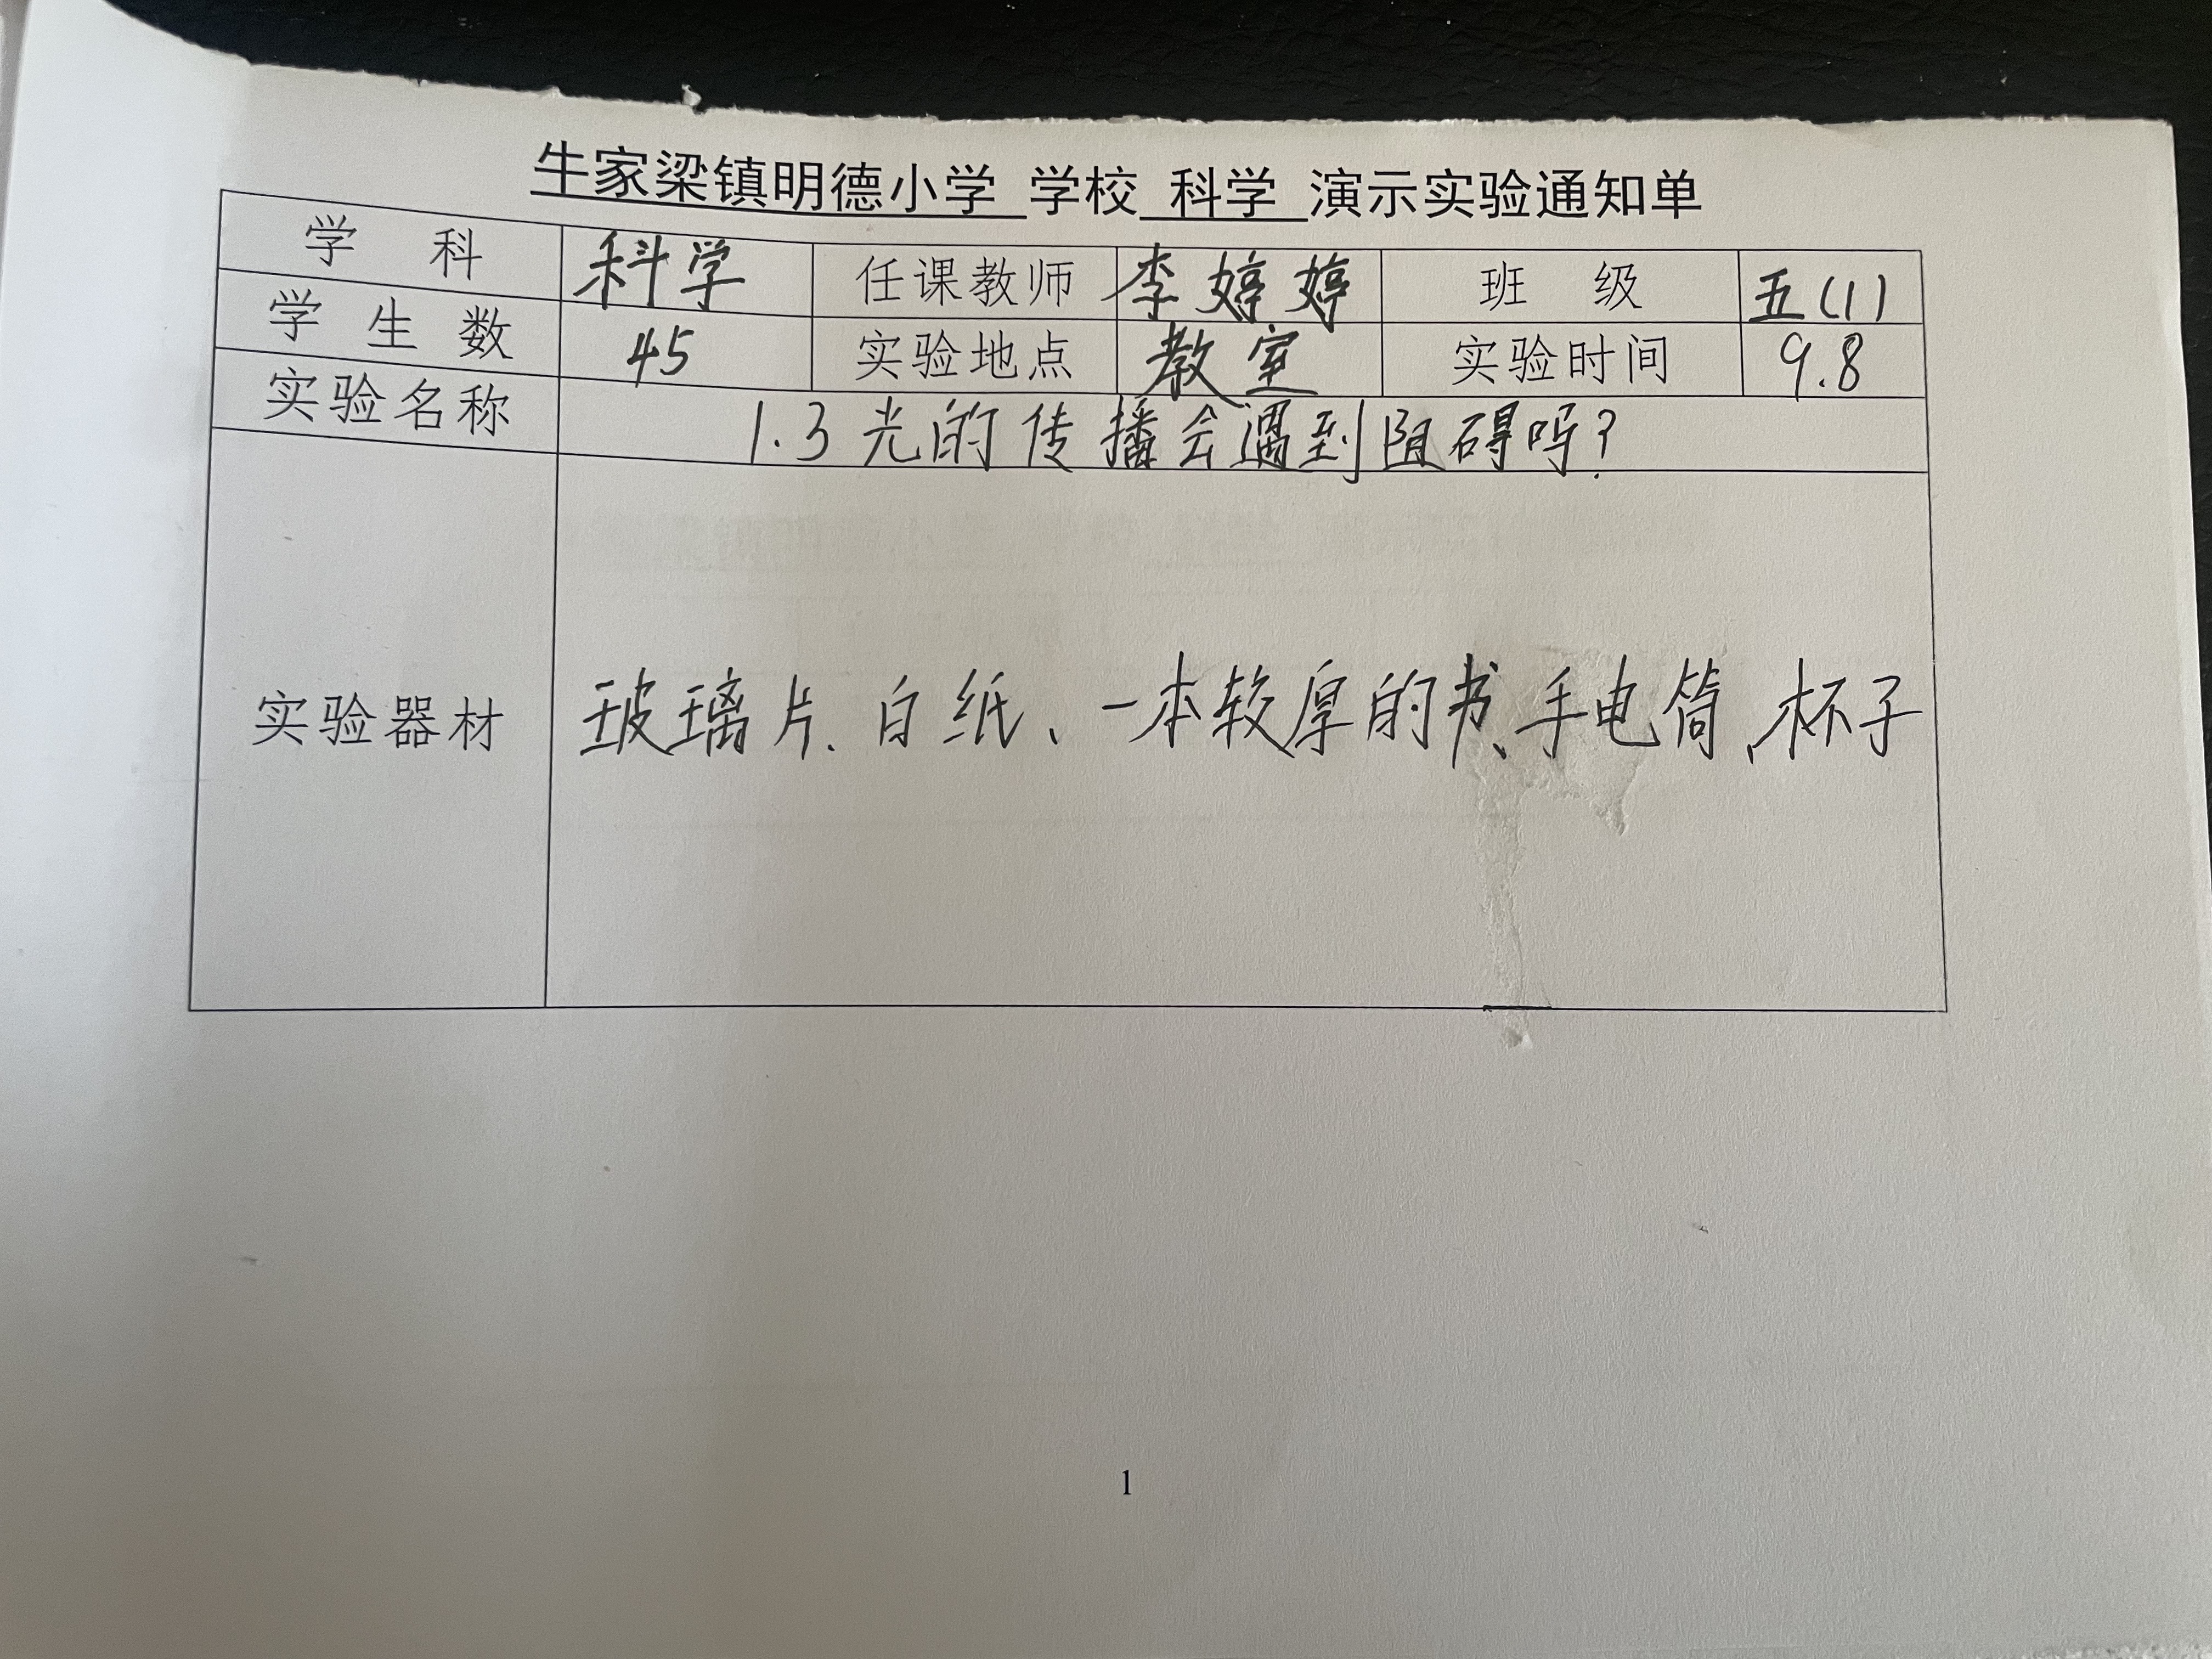 牛家梁镇明德小学 学校 科学 演示实验通知单
学 科 科学 任课教师 李婷婷 班 级 五(1)
学生数 45 实验地点 教室 实验时间 9.8
实验名称 1.3光的传播会遇到阻碍吗?
实验器材 玻璃片、白纸、一本较厚的书、手电筒、杯子
1